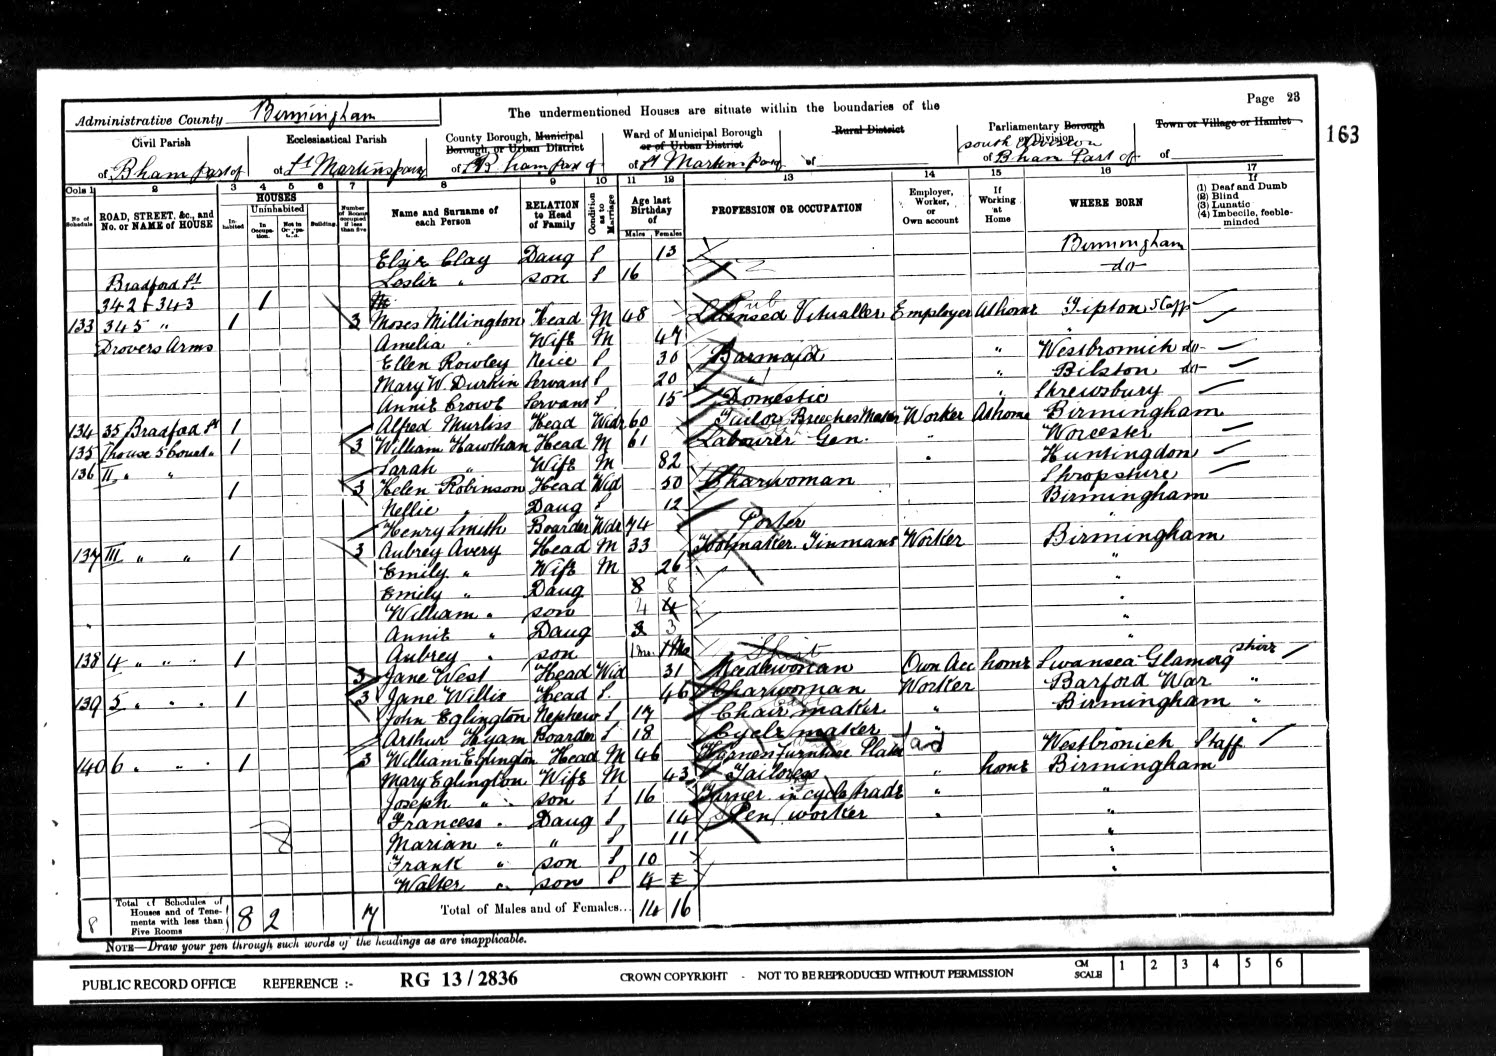 Page 23
163
Administrative County Birmingham
The undermentioned Houses are situate within the boundaries of the
Civil Parish
of B'ham Part of
Ecclesiastical Parish
of St Martins part
County Borough, Municipal Borough, or Urban District
of B'ham part of
Ward of Municipal Borough or of Urban District
of St Martins part
Rural District
of
Parliamentary Borough or Division
south Division
of B'ham Part of
Town or Village or Hamlet
of
Cols 1 2 3 4 5 6 7 8 9 10 11 12 13 14 15 16 17
No. of Schedule
ROAD, STREET, &c., and No. or NAME of HOUSE
HOUSES
Inhabited
Uninhabited
In Occupation.
Not in Occupation.
Building
Number of Rooms occupied if less than five
Name and Surname of each Person
RELATION to Head of Family
Condition as to Marriage
Age last Birthday of
Males Females
PROFESSION OR OCCUPATION
Employer, Worker, or Own account
If Working at Home
WHERE BORN
If
(1) Deaf and Dumb
(2) Blind
(3) Lunatic
(4) Imbecile, feeble-minded
Elsie Clay Daug S 13 Birmingham
Bradford St Leslie " son S 16 do
342 & 343 1
133 345 " 1 3 Moses Millington Head M 48 Licensed Vitualler Pub Employer At home Tipton Staff
Drovers Arms Amelia " Wife M 47 "
Ellen Rowley Neice S 30 Barmaid " Westbromich do
Mary W. Durkin Servant S 20 " " Bilston do
Annie Crowe Servant S 15 Domestic " Shrewsbury
134 35 Bradford St 1 Alfred Murliss Head Widr 60 Tailor Breeches Maker Worker At home Birmingham
135 1 house 5 Court 1 3 William Hawthan Head M 61 Labourer Gen. " Worcester
136 II " " Sarah " Wife M 82 Huntingdon
1 3 Helen Robinson Head Wid 50 Charwoman Shropshire
Nellie " Daug S 12 Birmingham
Henry Smith Boarder Wdr 74 Porter "
137 III " " 1 3 Aubrey Avery Head M 33 Toolmaker. Tinmans Worker Birmingham
Emily " Wife M 26 "
Emily " Daug 8 8 "
William " son 4 4 "
Annie " Daug 3 3 "
138 4 " " " 1 Aubrey " son 1 Mo. 1 Mo "
3 Jane West Head Wid 31 Needlewoman Shirt Own Acc home Swansea Glamorgshire
139 5 " " 1 3 Jane Willis Head S. 46 Charwoman Worker Barford War "
John Eglington Nephew S 17 Chair maker " Birmingham "
Arthur Hyam Boarder S 18 Cycle maker " "
140 6 " " 1 3 William Eglington Head M 46 Harness Furniture Plater Westbromich Staff
Mary Eglington Wife M 43 Tailoress " home Birmingham
Joseph " son S 16 Turner in cycle trade " "
Frances " Daug S 14 Pen worker " "
Marian " " S 11 "
Frank " son S 10 "
Walter " son S 4 "
8 Total of Schedules of Houses and of Tenements with less than Five Rooms 8 2 7 Total of Males and of Females... 14 16
NOTE—Draw your pen through such words of the headings as are inapplicable.
PUBLIC RECORD OFFICE REFERENCE :- RG 13 / 2836 CROWN COPYRIGHT - NOT TO BE REPRODUCED WITHOUT PERMISSION
CM SCALE 1 2 3 4 5 6